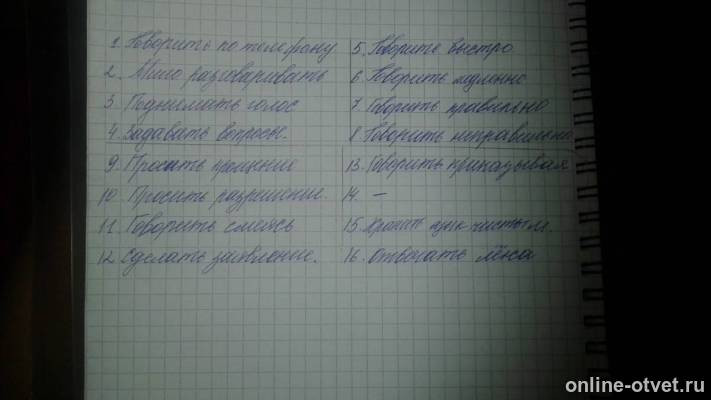 1. Говорить по телефону
2. Мило разговаривать
3. Поднимать голос
4. Задавать вопросы.
5. Говорить быстро
6. Говорить медленно
7. Говорить правильно
8. Говорить неправильно
9. Просить прощение
10. Просить разрешение.
11. Говорить смеясь
12. Сделать заявление.
13. Говорить приказывая
14. —
15. язык чистым.
16. Отвечать
online-otvet.ru